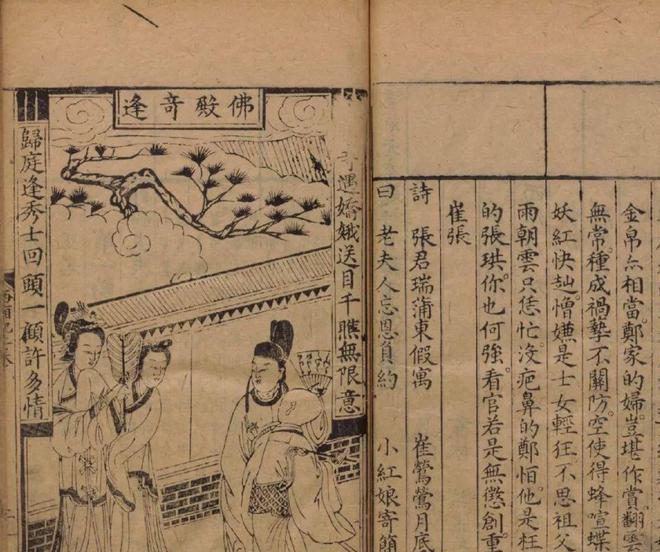 金帛亦相當。鄭家的婦。豈堪作賞。翻雲
無常。種成禍孽不關防。空使得蜂喧蝶
妖紅快訕。憎嫌是士女輕狂。不思祖父
雨朝雲只恁忙。沒疤鼻的鄭怕他是枉
的張珙。你也何強。看官若是無懲創。重
崔張
詩 張君瑞蒲東假寓 崔鶯鶯月底
曰 老夫人忘恩負約 小紅娘寄簡
佛殿奇逢
遇嬌娥送目千瞧無限意
歸庭逢秀士回頭一顧許多情